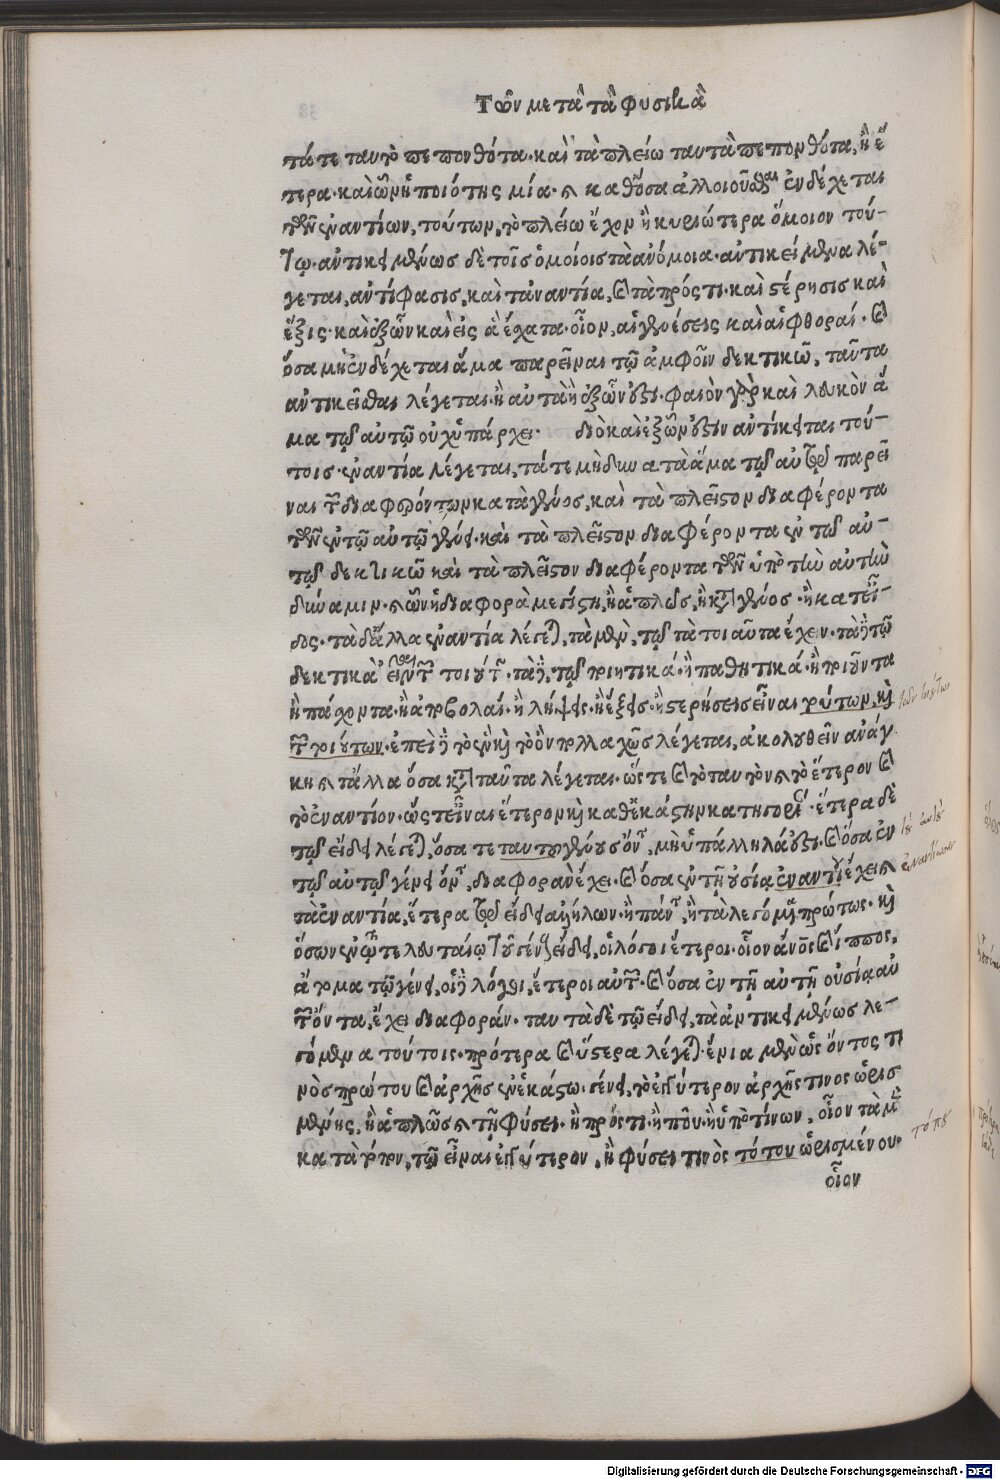 Τῶν μετὰ τὰ φυσικὰ
τά τε ταυτὸ πεπονθότα. καὶ τὰ πλείω ταυτὰ πεπονθότα, ἢ ἕ
τερα. καὶ ὧν ἡ ποιότης μία. καὶ καθ' ὅσα ἀλλοιοῦσθαι ἐνδέχεται
τῶν ἐναντίων, τούτων, τὸ πλείω ἔχον ἢ κυριώτερα ὅμοιον τού-
τῳ. ἀντικειμένως δὲ τοῖς ὁμοίοις τὰ ἀνόμοια. ἀντικείμενα λέ-
γεται, ἀντίφασις, καὶ τἀναντία, καὶ τὰ πρός τι. καὶ στέρησις καὶ
ἕξις. καὶ ἐξ ὧν καὶ εἰς ἃ ἔσχατα. οἷον, αἱ γενέσεις καὶ αἱ φθοραί. καὶ
ὅσα μὴ ἐνδέχεται ἅμα παρεῖναι τῷ ἀμφοῖν δεκτικῷ, ταῦτα
ἀντικεῖσθαι λέγεται ἢ αὐτὰ ἢ ἐξ ὧν ἐστιν. φαιὸν γὰρ καὶ λευκὸν ἅ
μα τῷ αὐτῷ οὐχ ὑπάρχει. διὸ καὶ ἐξ ὧν ἐστιν ἀντίκειται τού-
τοις. ἐναντία λέγεται, τά τε μὴ δυνατὰ ἅμα τῷ αὐτῷ παρεῖ
ναι τῶν διαφερόντων κατὰ γένος, καὶ τὰ πλεῖστον διαφέροντα
τῶν ἐν τῷ αὐτῷ γένει. καὶ τὰ πλεῖστον διαφέροντα ἐν τῷ αὐ-
τῷ δεκτικῷ καὶ τὰ πλεῖστον διαφέροντα τῶν ὑπὸ τὴν αὐτὴν
δύναμιν. καὶ ὧν ἡ διαφορὰ μεγίστη, ἢ ἁπλῶς, ἢ κατὰ γένος. ἢ κατ' εἶ-
δος. τὰ δ' ἄλλα ἐναντία λέγεται, τὰ μὲν, τῷ τὰ τοιαῦτα ἔχειν. τὰ δὲ τῷ
δεκτικὰ εἶναι τῶν τοιούτων. τὰ δὲ, τῷ ποιητικά. ἢ παθητικά. ἢ ποιοῦντα
ἢ πάσχοντα. ἢ ἀποβολαί. ἢ λήψεις. ἢ ἕξεις. ἢ στερήσεις εἶναι τούτων, καὶ
τῶν τοιούτων. ἐπεὶ δὲ τὸ ἓν καὶ τὸ ὂν πολλαχῶς λέγεται, ἀκολουθεῖν ἀνάγ
κη καὶ τἄλλα ὅσα κατὰ ταῦτα λέγεται. ὥστε καὶ τὸ ταυτὸν καὶ τὸ ἕτερον καὶ
τὸ ἐναντίον. ὥστ' εἶναι ἕτερον καὶ καθ' ἑκάστην κατηγορίαν. ἕτερα δὲ
τῷ εἴδει λέγεται, ὅσα τε ταυτοῦ γένους ὄντα, μὴ ὑπάλληλά ἐστι. καὶ ὅσα ἐν
τῷ αὐτῷ γένει ὄντα, διαφορὰν ἔχει. καὶ ὅσα ἐν τῇ οὐσίᾳ ἐναντίον ἔχει καὶ
τὰ ἐναντία, ἕτερα τῷ εἴδει ἀλλήλων. ἢ πάντα, ἢ τὰ λεγόμενα πρώτως. καὶ
ὅσων ἐν τῷ τελευταίῳ τοῦ γένους εἴδει, οἱ λόγοι ἕτεροι. οἷον ἄνθρωπος καὶ ἵππος,
ἄτομα τῷ γένει, οἱ δὲ λόγοι, ἕτεροι αὐτῶν. καὶ ὅσα ἐν τῇ αὐτῇ οὐσίᾳ αὐ
τῶν ὄντα, ἔχει διαφοράν. ταυτὰ δὲ τῷ εἴδει, τὰ ἀντικειμένως λε-
γόμενα τούτοις. πρότερα καὶ ὕστερα λέγεται. ἔνια μὲν ὡς ὄντος τι
νὸς πρώτου καὶ ἀρχῆς ἐν ἑκάστῳ. γένει, τὸ ἐγγύτερον ἀρχῆς τινος ὡρισ
μένης, ἢ ἁπλῶς καὶ τῇ φύσει. ἢ πρός τι. ἢ ποῦ. ἢ ὑπό τινων, οἷον τὰ μὲν
κατὰ τόπον, τῷ εἶναι ἐγγύτερον, ἢ φύσει τινὸς τότου ὡρισμένου.
οἷον
τῶν τοιούτων
τοῦ αὐτοῦ
ἐναντίωσιν
τόπου
Digitalisierung gefördert durch die Deutsche Forschungsgemeinschaft - DFG